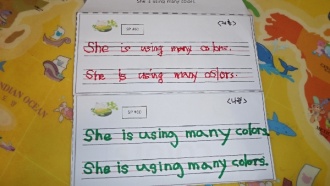 She is using many colors
She is using many colors.
She is using many colors.
She is using many colors.
She is using many colors.
INDIAN OCEAN